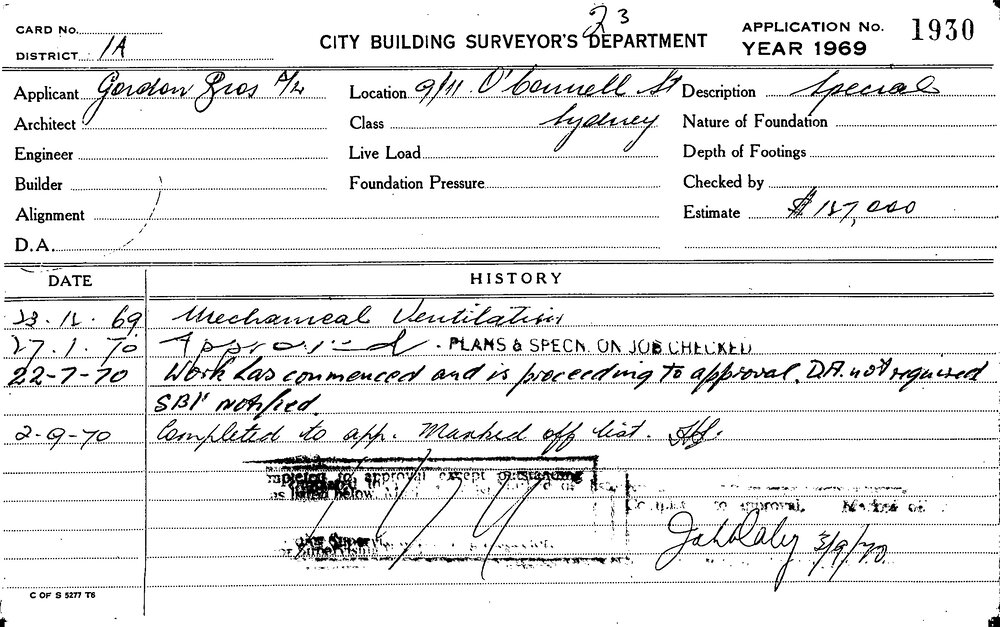 23
CARD No.
CITY BUILDING SURVEYOR'S DEPARTMENT
APPLICATION No. 1930
DISTRICT 1A
YEAR 1969
Applicant Gordon Bros P/L
Location 9/11 O'Connell St
Description Special
Architect
Class Sydney
Nature of Foundation
Engineer
Live Load
Depth of Footings
Builder
Foundation Pressure
Checked by
Alignment
Estimate $187,000
D.A.
DATE HISTORY
23.12.69 Mechanical Ventilation
27.1.70 Approved . PLANS & SPECN. ON JOB CHECKED
22-7-70 Work has commenced and is proceeding to approval. D.A. not required
SBI notified.
2-9-70 Completed to app. Marked off list.
to approval except outstanding
as listed below
to approval. Marked of
3/9/70
C OF S 5277 T6